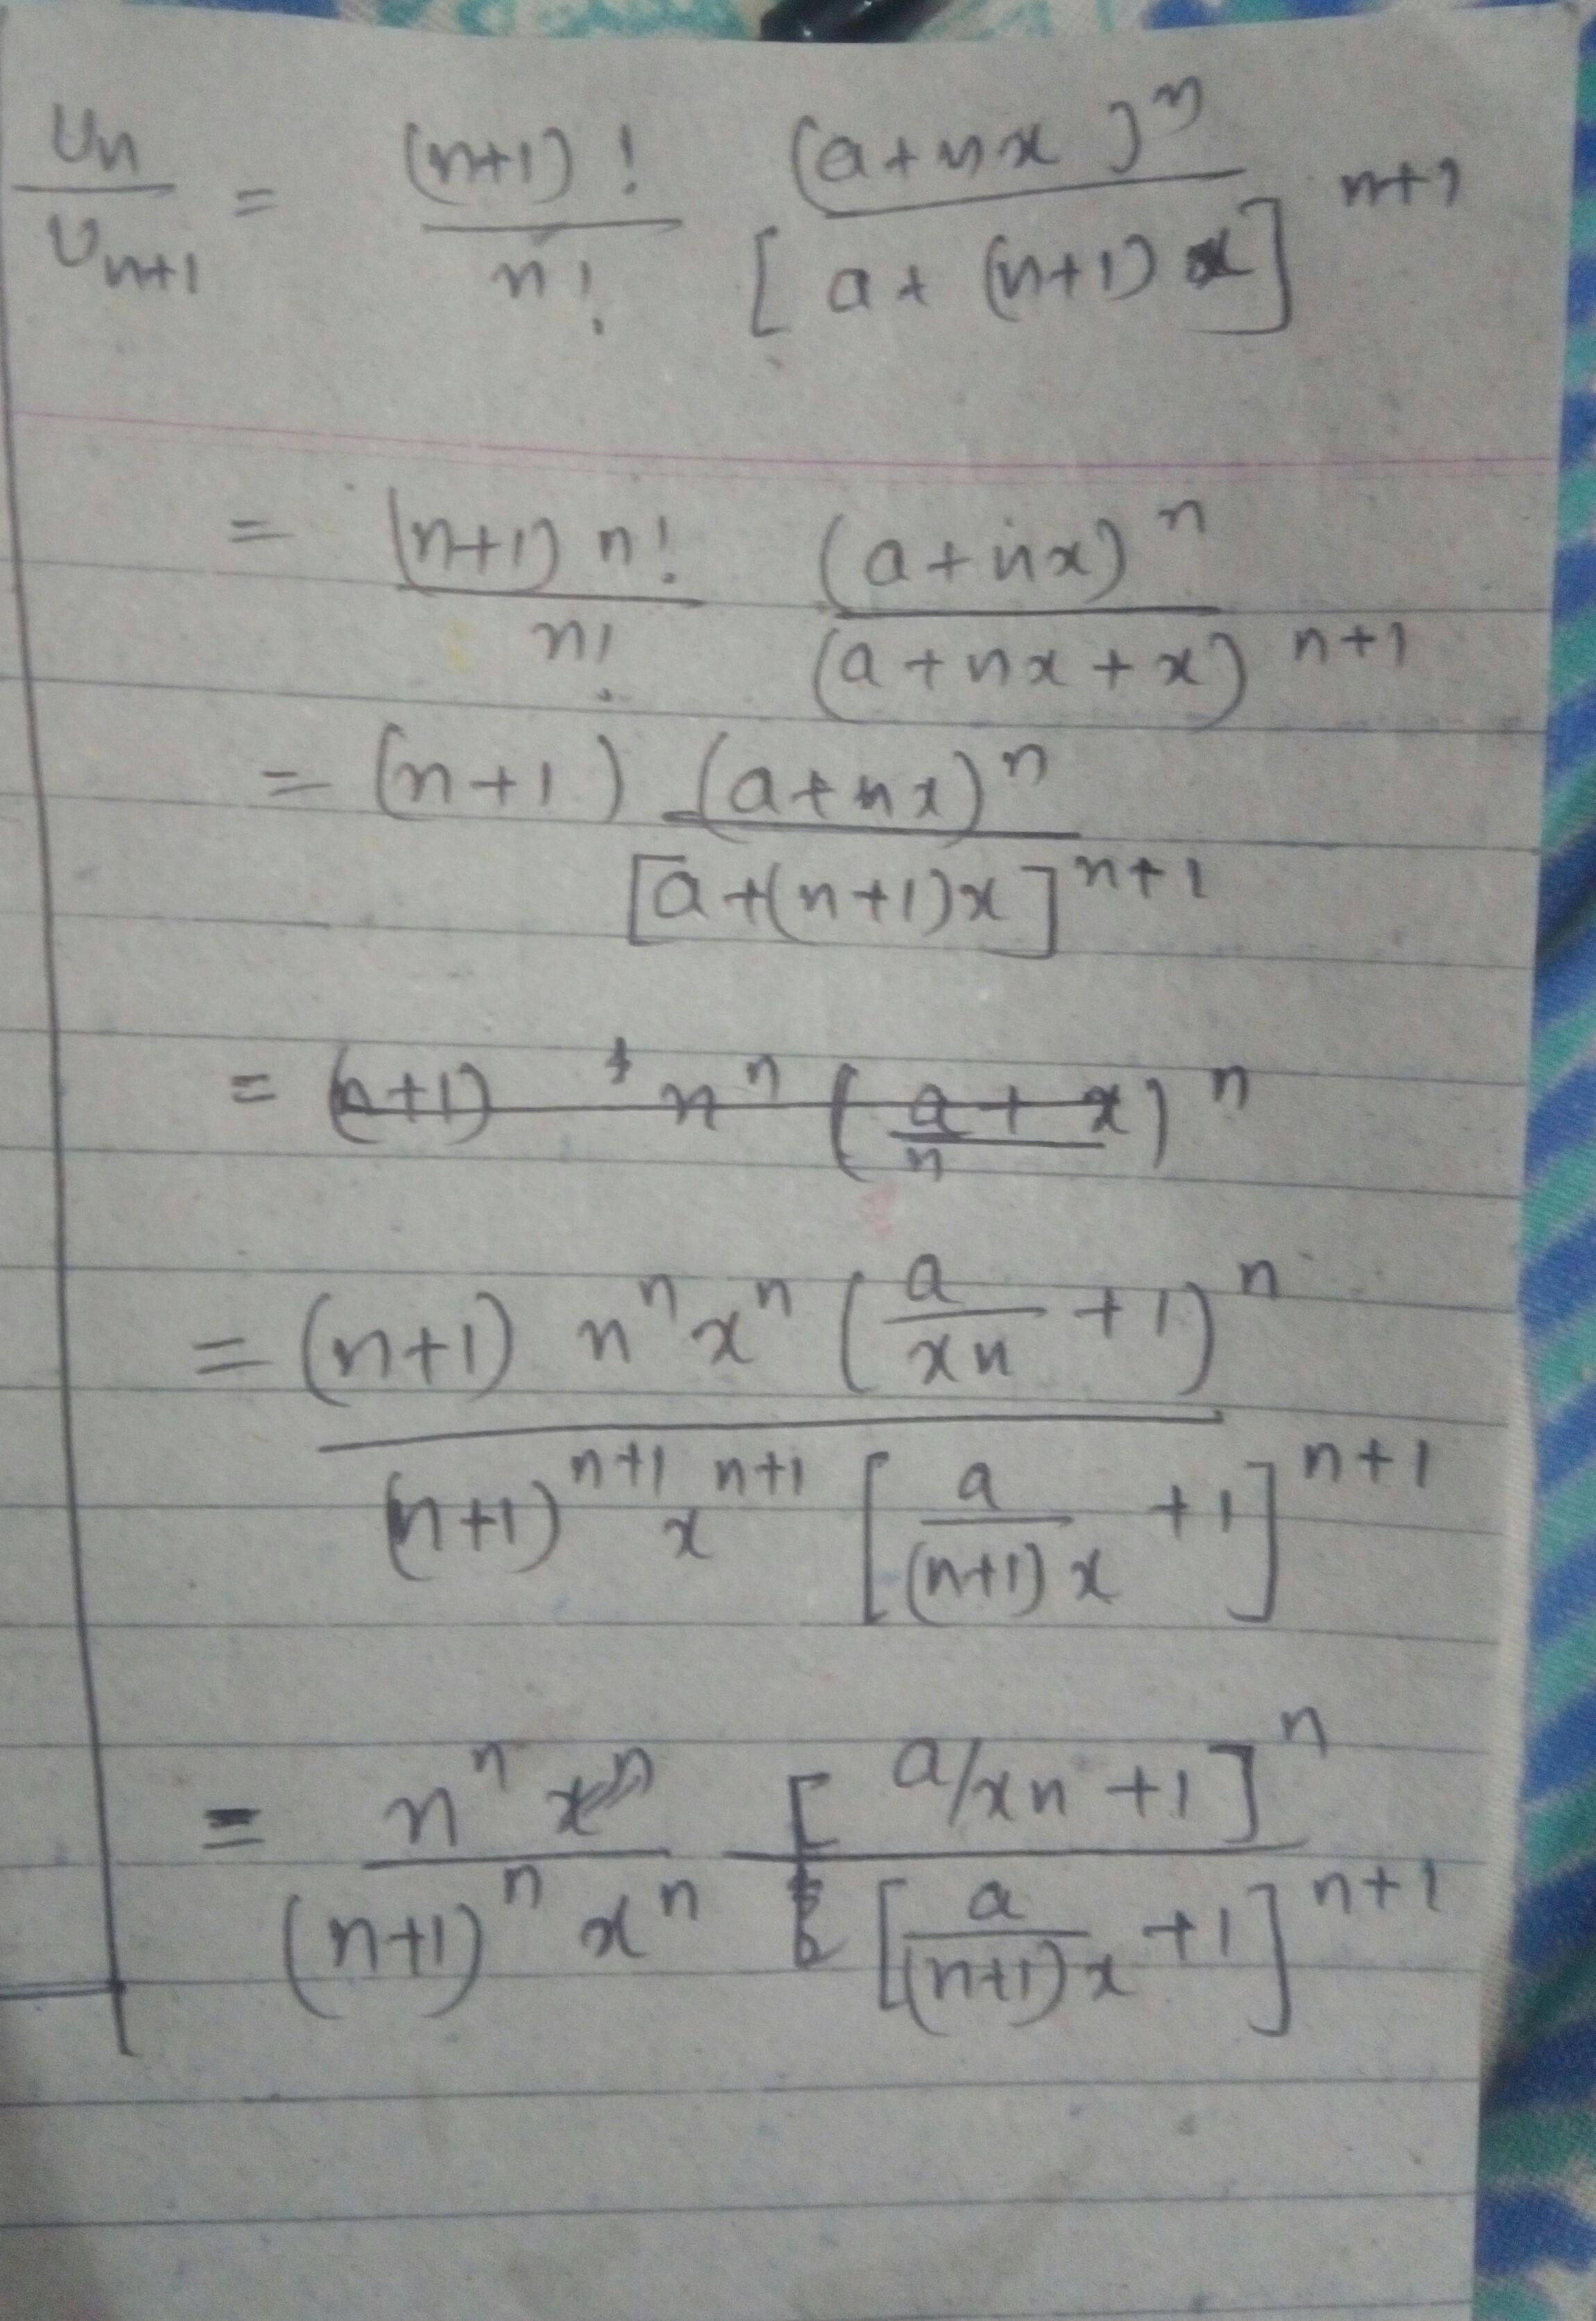 Un/Un+1 = (n+1)!/n! (a+nx)^n/[a+(n+1)x]^n+1
= (n+1) n!/n! (a+nx)^n/(a+nx+x)^n+1
= (n+1) (a+nx)^n/[a+(n+1)x]^n+1
= (n+1) n^n (a+x/n)^n
= (n+1) n^n x^n (a/xn +1)^n/(n+1)^n+1 x^n+1 [a/(n+1)x +1]^n+1
= n^n x^n/(n+1)^n x^n [a/xn +1]^n/[a/(n+1)x +1]^n+1